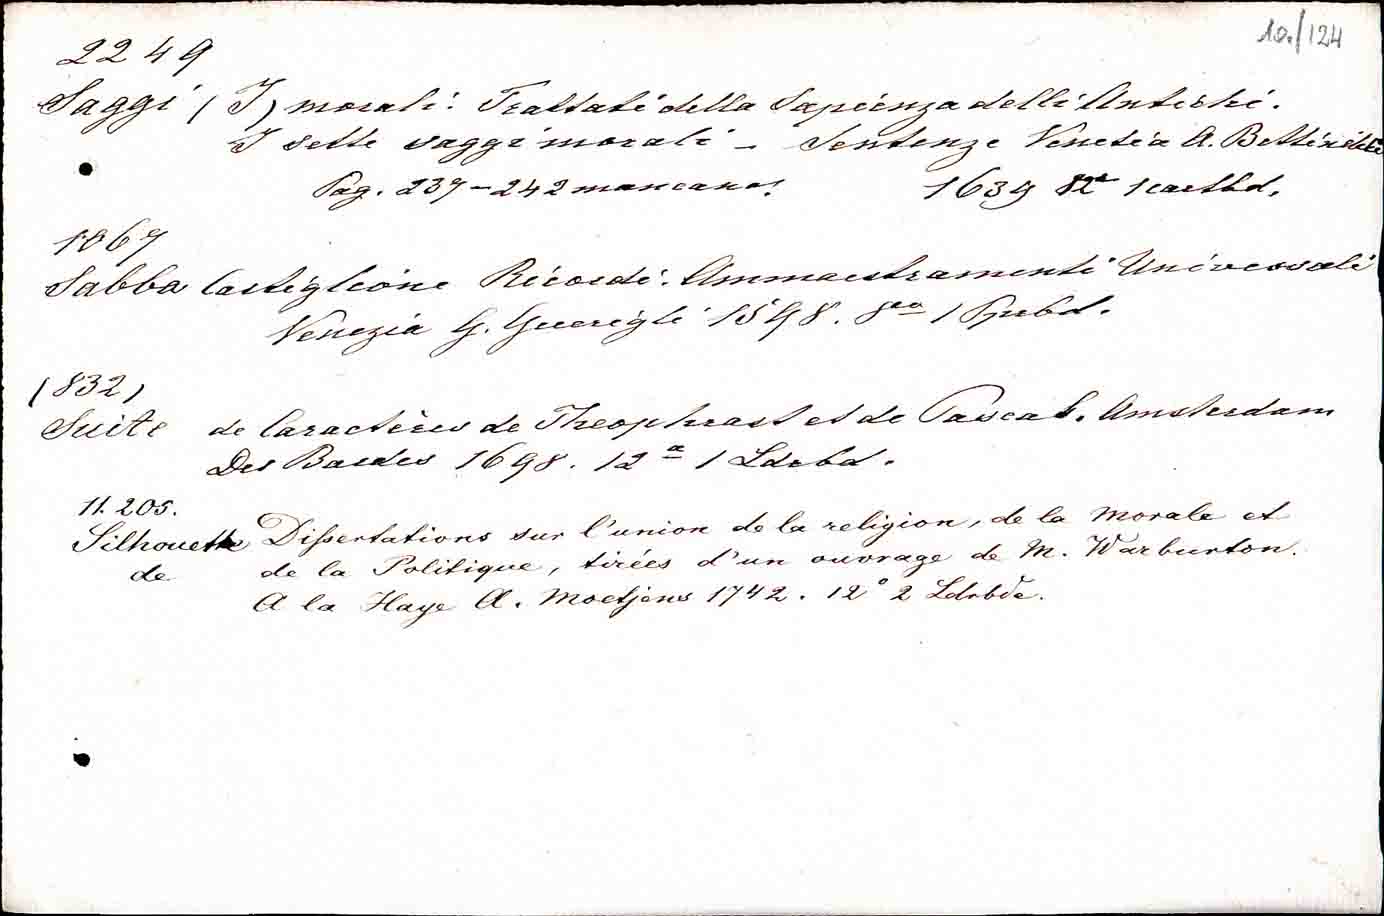 10./124
2249
Saggi (I) morali. Trattati della Sapienza delli Antichi.
I sette saggi morali – Sentenze Venetia A.
Pag. 239–242 mancano! 1639 12° 1 cartbd.
1067
Sabba Castiglione Ricordi. Ammaestramenti Universali
Venezia G. Guerigli 1598. 8vo 1 Pgrbd.
(832)
Suite de Caractères de Theophrast et de Pascal. Amsterdam
Des Bordes 1698. 12° 1 Ldrbd.
11.205.
Silhouette Dissertations sur l'union de la religion, de la Morale et
de de la Politique, tirées d'un ouvrage de M. Warburton.
A la Haye A. Moetjens 1742. 12° 2 Ldrbde.